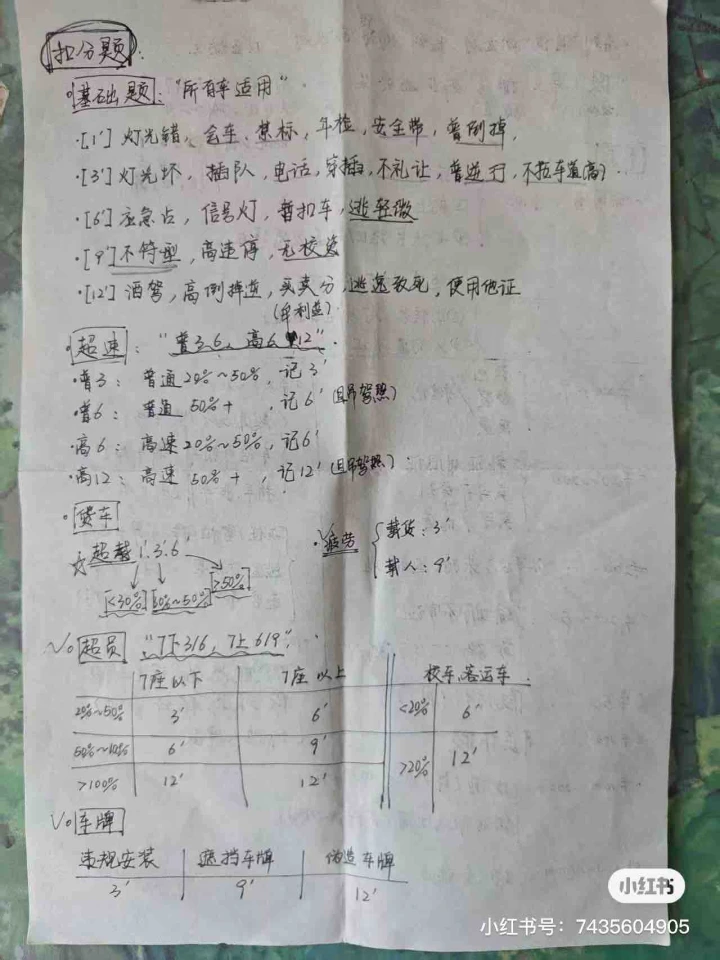 扣分题:
基础题:"所有车适用"
·[1'] 灯光错, 会车、禁标, 年检, 安全带, 普倒掉,
·[3'] 灯光坏, 插队, 电话, 穿插, 不礼让, 普逆行, 不按车道(高)
·[6'] 应急占, 信号灯, 暂扣车, 逃轻微
·[9'] 不符型, 高速停, 无校资
·[12'] 酒驾, 高倒掉逆, 买卖分, 逃逸致死, 使用他证
(牟利益)
超速: "普3.6, 高6 12"
·普3: 普通20%~50%, 记3'
·普6: 普通 50%+ , 记6' (且吊驾照)
·高6: 高速20%~50%, 记6'
·高12: 高速 50%+ , 记12' (且吊驾照)
货车
超载 1'.3'.6
<30% 30%~50% >50%
疲劳
载货: 3'
载人: 9'
超员 "7下316, 7上619"
7座以下 7座以上 校车,客运车
20%~50% 3' 6' <20% 6'
50%~100% 6' 9'
>20% 12'
>100% 12' 12'
车牌
违规安装 遮挡车牌 伪造车牌
3' 9' 12'
小红书
小红书号: 7435604905